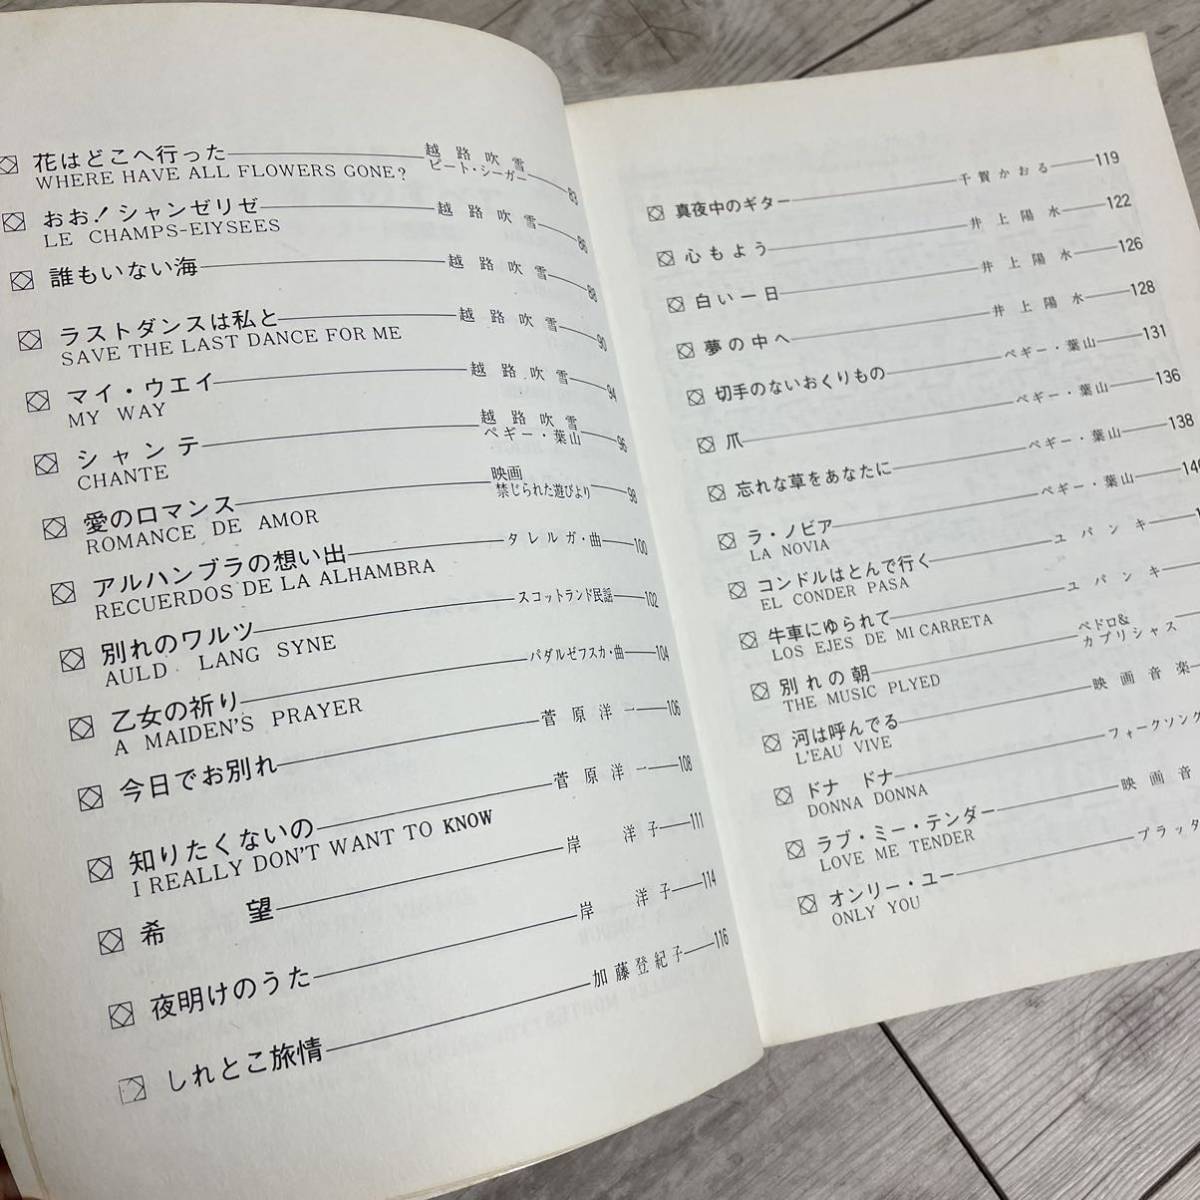 花はどこへ行った 越路吹雪 ピート・シーガー 83
WHERE HAVE ALL FLOWERS GONE?
おお！シャンゼリゼ 越路吹雪 86
LE CHAMPS-EIYSEES
誰もいない海 越路吹雪 88
ラストダンスは私と 越路吹雪 90
SAVE THE LAST DANCE FOR ME
マイ・ウエイ 越路吹雪 94
MY WAY
シャンテ 越路吹雪 ペギー・葉山 96
CHANTE
愛のロマンス 映画 禁じられた遊びより 98
ROMANCE DE AMOR
アルハンブラの想い出 タレルガ・曲 100
RECUERDOS DE LA ALHAMBRA
別れのワルツ スコットランド民謡 102
AULD LANG SYNE
乙女の祈り パダルゼフスカ・曲 104
A MAIDEN'S PRAYER
今日でお別れ 菅原洋一 106
知りたくないの 菅原洋一 108
I REALLY DON'T WANT TO KNOW
希望 岸洋子 111
夜明けのうた 岸洋子 114
しれとこ旅情 加藤登紀子 116
真夜中のギター 千賀かおる 119
心もよう 井上陽水 122
白い一日 井上陽水 126
夢の中へ 井上陽水 128
切手のないおくりもの ペギー・葉山 131
爪 ペギー・葉山 136
忘れな草をあなたに ペギー・葉山 138
ラ・ノビア ペギー・葉山 140
LA NOVIA
コンドルはとんで行く ユパンキ
EL CONDER PASA
牛車にゆられて ユパンキ
LOS EJES DE MI CARRETA
別れの朝 ペドロ& カプリシャス
THE MUSIC PLYED
河は呼んでる 映画音楽
L'EAU VIVE
ドナ ドナ フォークソング
DONNA DONNA
ラブ・ミー・テンダー 映画音
LOVE ME TENDER
オンリー・ユー プラッタ
ONLY YOU